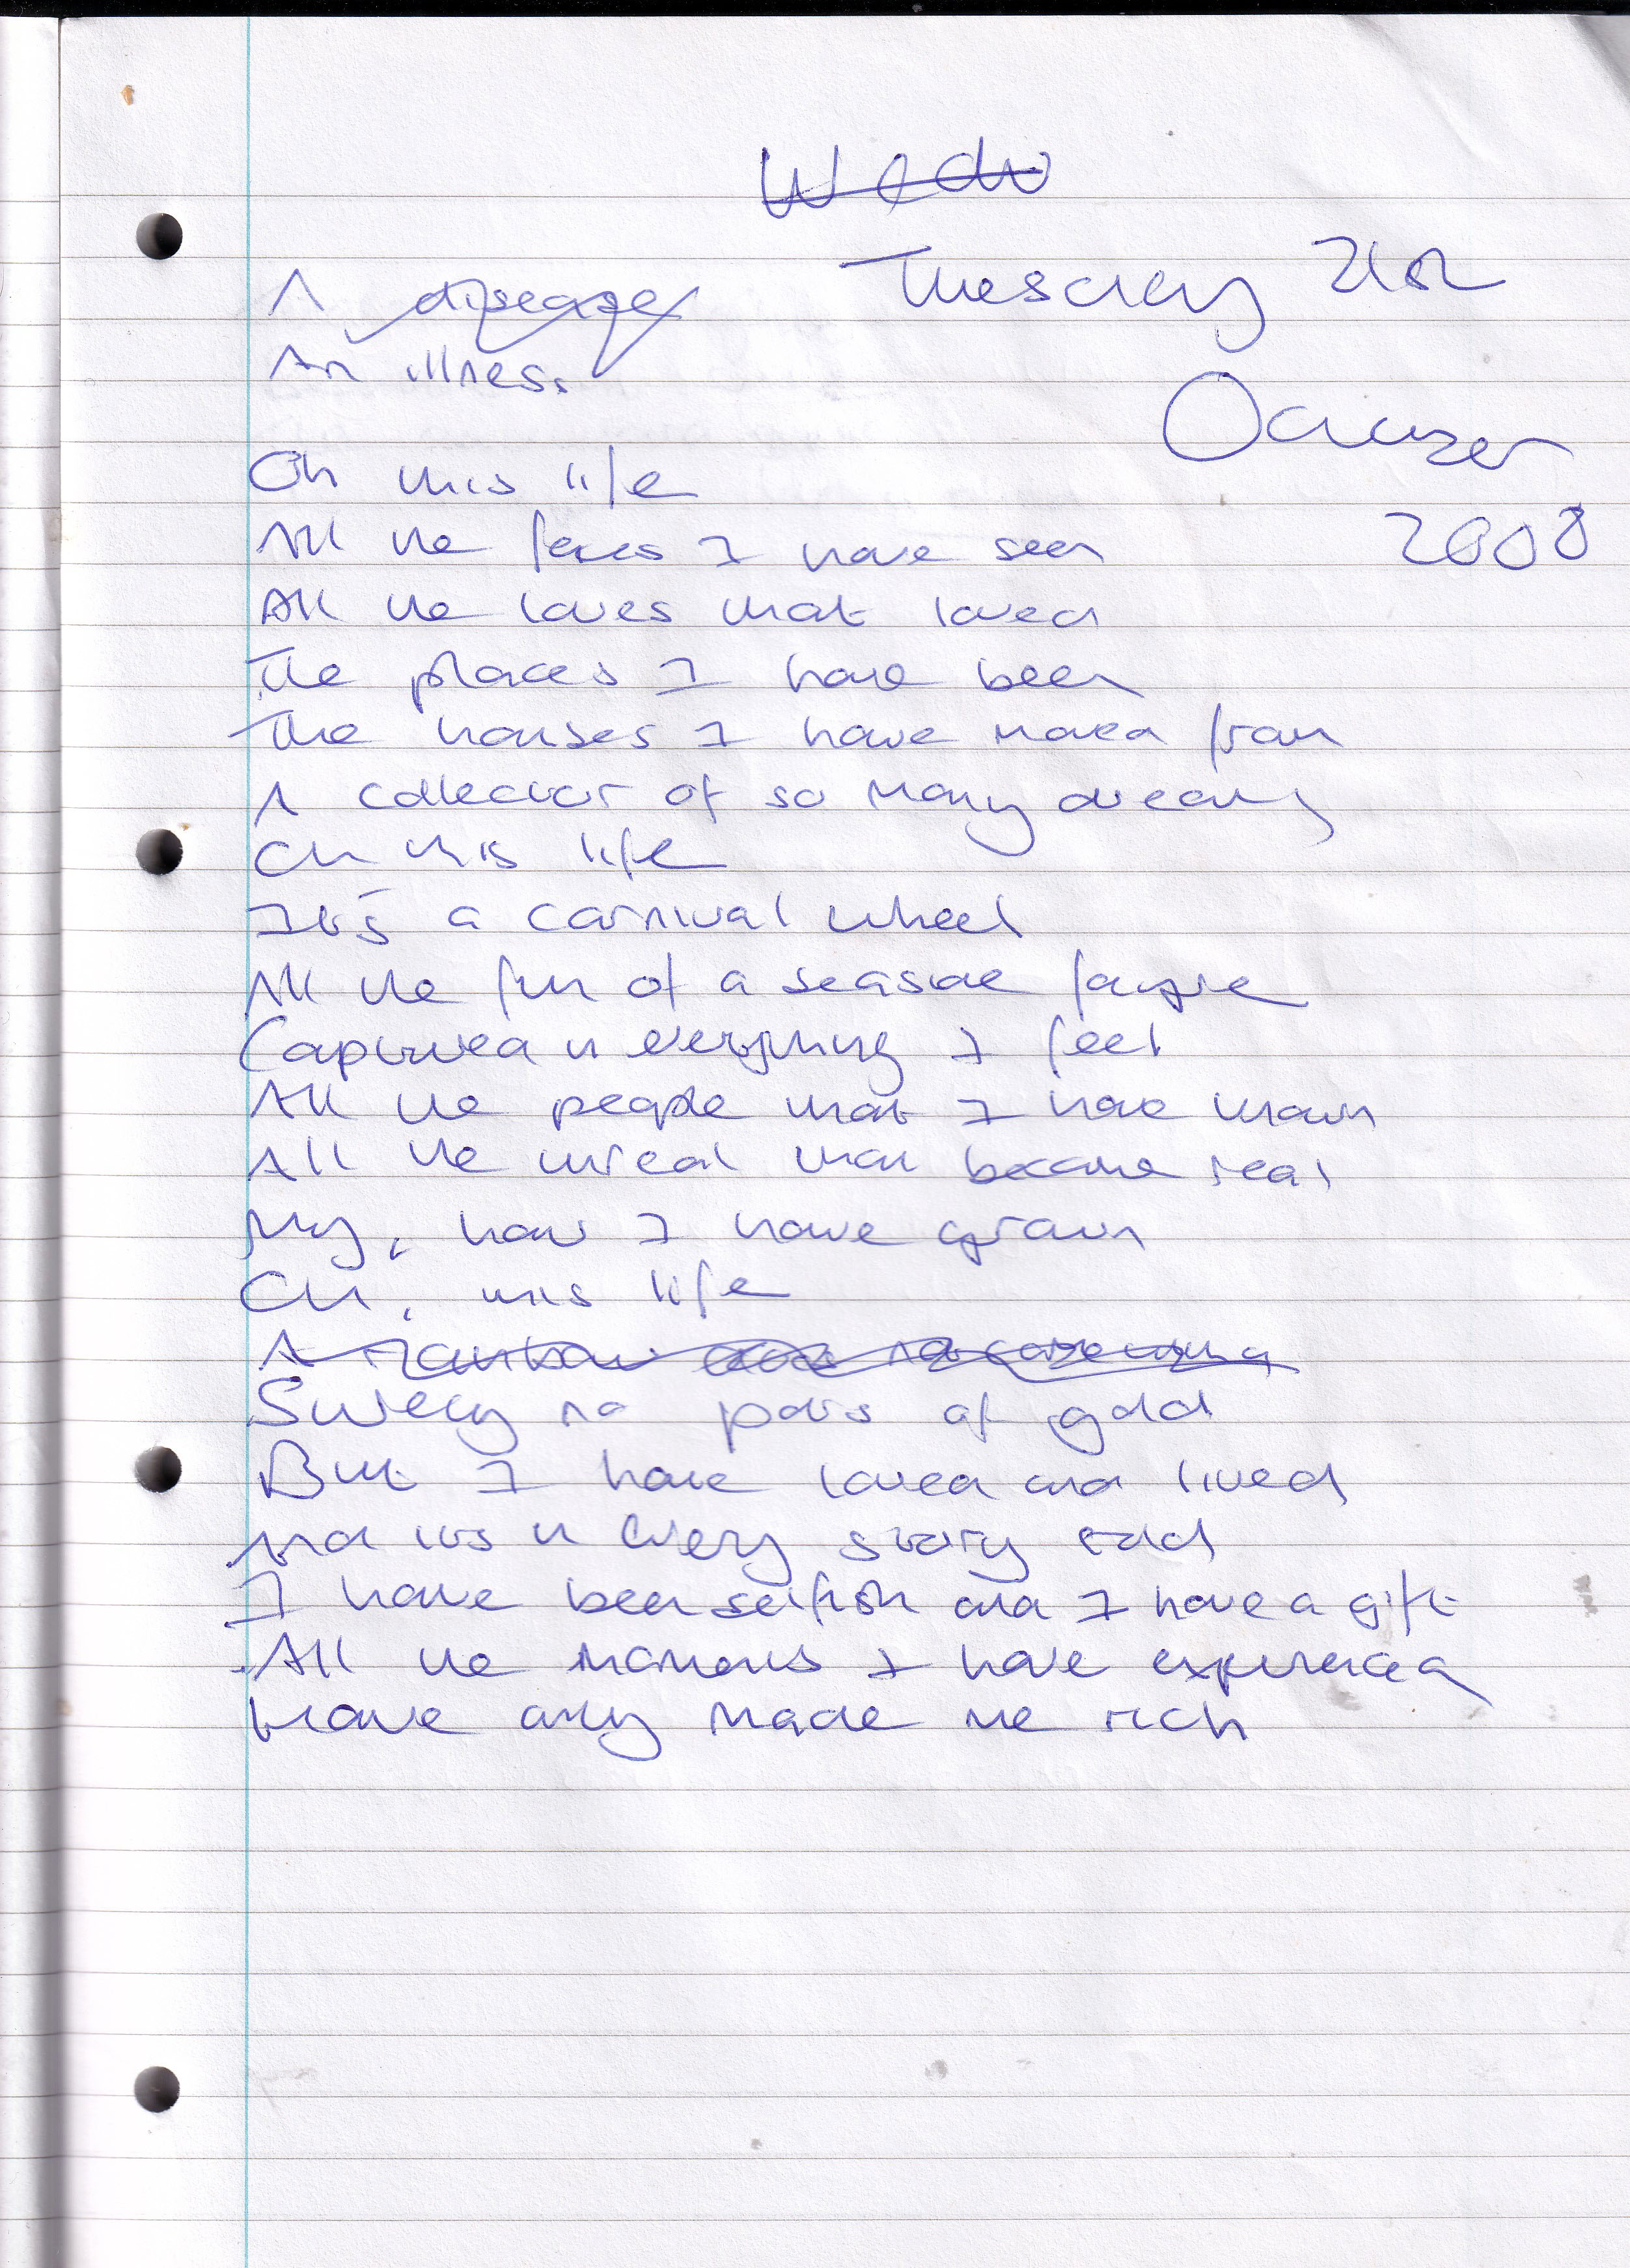 Wedn
Tuesday 21st
A disease
An illness.
October
2008
Oh this life
All the faces I have seen
All the loves that loved
The places I have been
The houses I have moved from
A collector of so many dreams
Oh this life
It's a carnival wheel
All the fun of a seaside
Captured in everything I feel
All the people that I have known
All the unreal that became real
My, how I have grown
Oh, this life
A rainbow
Surely no pots of gold
But I have loved and lived
And its in every story told
I have been selfish and I have a gift
All the moments I have experienced
have only made me rich